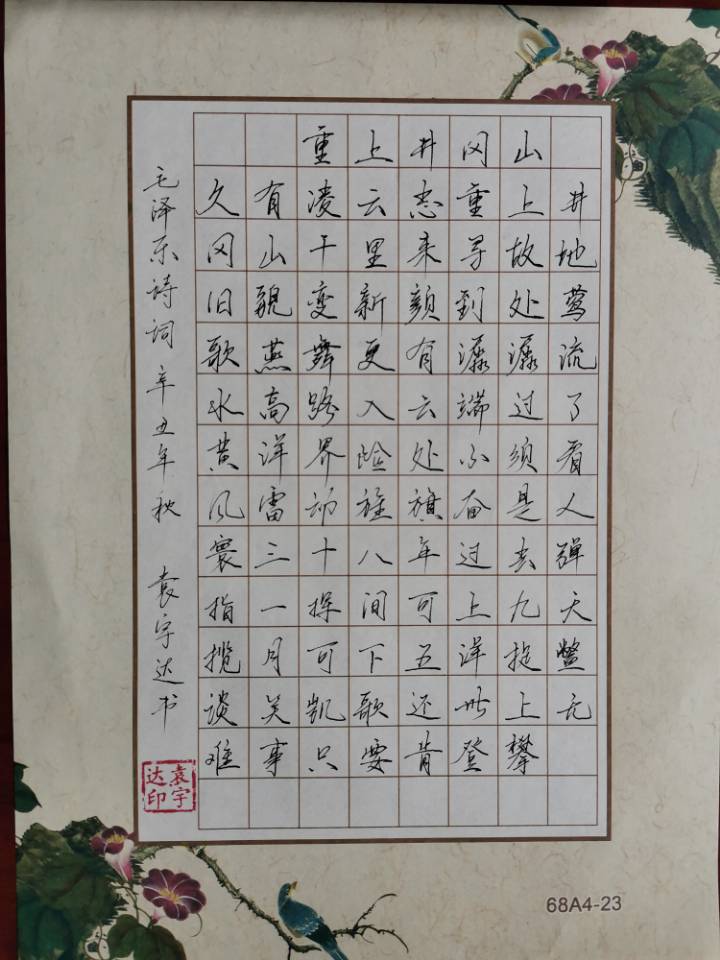 重上井冈山
久有凌云志重上井
冈山千里来寻故地
旧貌变新颜到处莺
歌燕舞更有潺潺流
水高路入云端过了
黄洋界险处不须看
风雷动旌旗奋是人
寰三十八年过去弹
指一挥间可上九天
揽月可下五洋捉鳖
谈笑凯歌还世上无
难事只要肯登攀
毛泽东诗词 辛丑年秋 袁宇达书
袁宇
达印
68A4-23